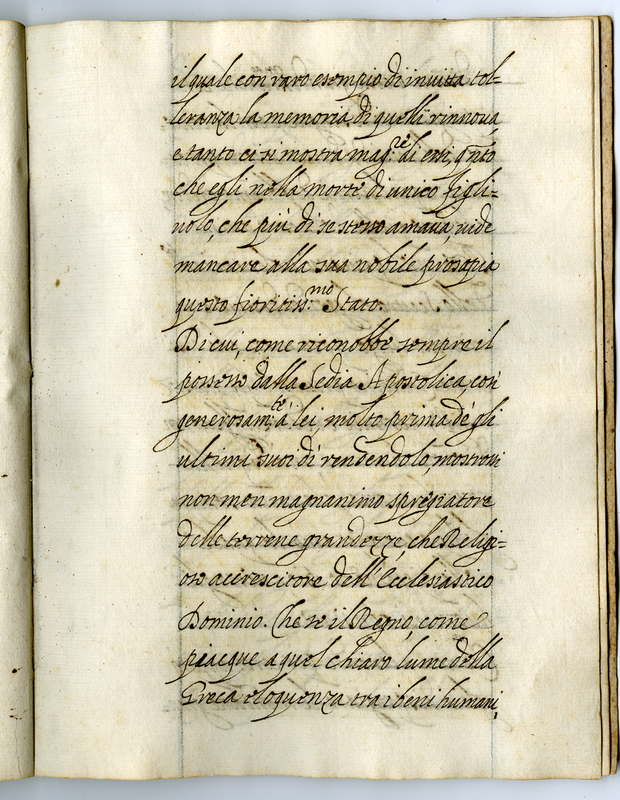 il quale con raro esempio di inuitta tol=
leranza la memoria di quelli rinnoua,
e tanto ci si mostra mag:re di essi, q.nto
che egli nella morte di unico figli=
uolo, che più di se stesso amaua, uide
mancare alla sua nobile prosapia
questo fioritiss:mo Stato.
Di cui, come riconobbe sempre il
possesso dalla Sedia Apostolica, così
generosam:te à lei, molto prima de gli
ultimi suoi dì rendendolo, mostrossi
non men magnanimo spregiatore
delle terrene grandezze, che Religi=
oso accrescitore dell'Ecclesiastico
Dominio. Che se il Regno, come
piacque a quel chiaro lume della
Greca eloquenza tra i beni humani,